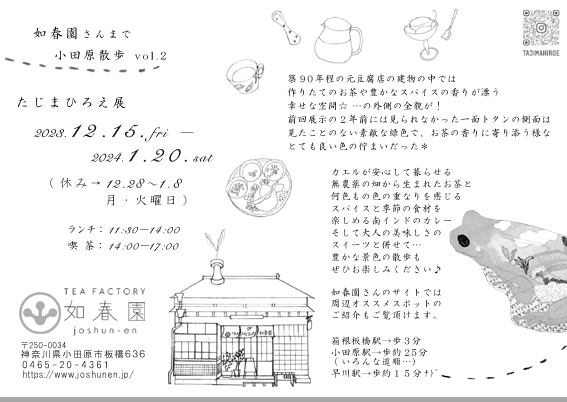 如春園さんまで
小田原散歩 vol.2
たじまひろえ展
2023.12.15.fri —
2024.1.20.sat
(休み→12.28〜1.8
月・火曜日)
ランチ: 11:30—14:00
喫 茶: 14:00—17:00
TEA FACTORY
如春園
joshun-en
〒250-0034
神奈川県小田原市板橋636
0465-20-4361
https://www.joshunen.jp/
TAJIMAHIROE
築90年程の元豆腐店の建物の中では
作りたてのお茶や豊かなスパイスの香りが漂う
幸せな空間☆ …の外側の全貌が!
前回展示の2年前には見られなかった一面トタンの側面は
見たことのない素敵な緑色で、お茶の香りに寄り添う様な
とても良い色の佇まいだった＊
カエルが安心して暮らせる
無農薬の畑から生まれたお茶と
何色もの色の重なりを感じる
スパイスと季節の食材を
楽しめる南インドのカレー
そして大人の美味しさの
スイーツと併せて…
豊かな景色の散歩も
ぜひお楽しみください♪
如春園さんのサイトでは
周辺オススメスポットの
ご紹介もご覧頂けます。
箱根板橋駅→歩3分
小田原駅→歩約25分
(いろんな道順…)
早川駅→歩約15分ﾅﾄﾞ